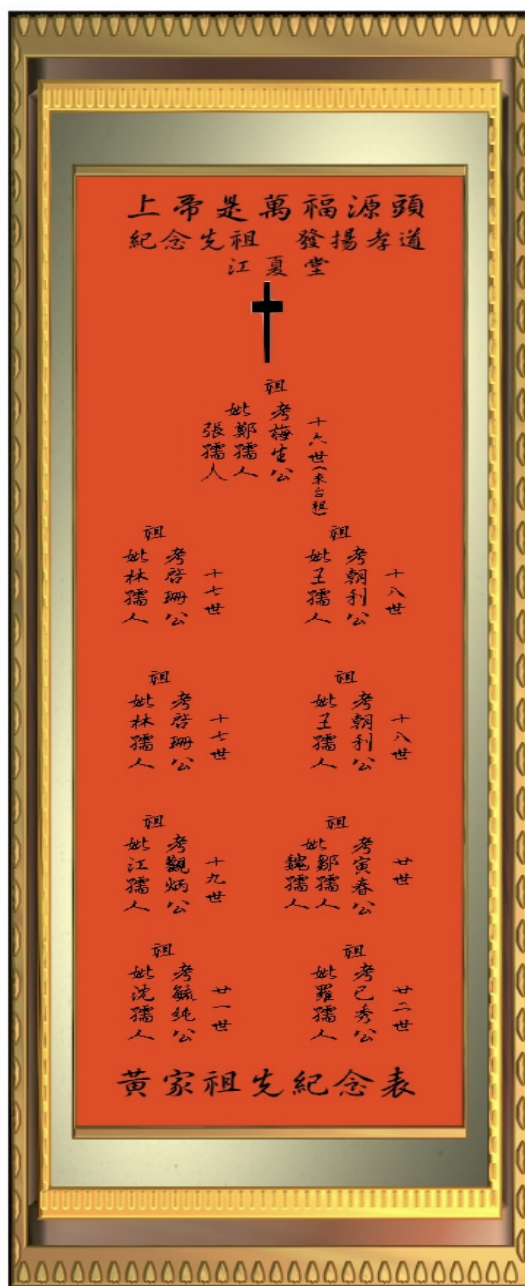 上帝是萬福源頭
紀念先祖　發揚孝道
江夏堂
十六世(來台祖)
祖考梅生公
妣鄭孺人
張孺人
十八世
祖考朝利公
妣王孺人
十七世
祖考啓珊公
妣林孺人
十八世
祖考朝利公
妣王孺人
十七世
祖考啓珊公
妣林孺人
廿世
祖考寅春公
妣鄒孺人
魏孺人
十九世
祖考觀炳公
妣江孺人
廿二世
祖考己秀公
妣羅孺人
廿一世
祖考毓純公
妣沈孺人
黃家祖先紀念表